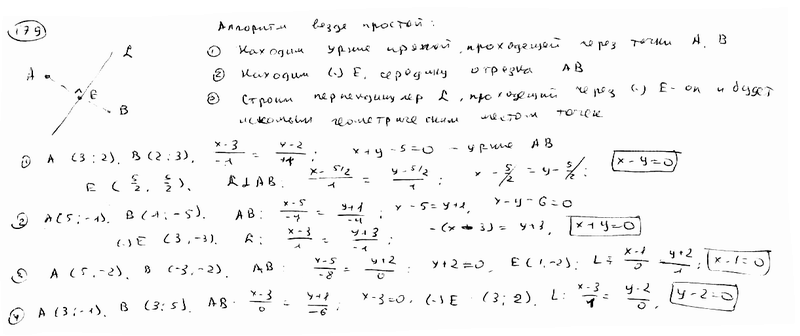 179
Алгоритм везде простой:
① Находим ур-ние прямой, проходящей через точки A, B
② Находим (·) E, середину отрезка AB
③ Строим перпендикуляр L, проходящий через (·) E - он и будет
искомым геометрическим местом точек
A
L
E
B
① A (3; 2), B (2; 3), \frac{x-3}{-1} = \frac{y-2}{1}; x+y-5=0 - ур-ние AB
E (\frac{5}{2}, \frac{5}{2}), L⊥AB: \frac{x-5/2}{1} = \frac{y-5/2}{1}; x-\frac{5}{2} = y-\frac{5}{2}; x-y=0
② A(5; -1), B(1; -5), AB: \frac{x-5}{-4} = \frac{y+1}{-4}; x-5=y+1, x-y-6=0
(·) E (3, -3), L: \frac{x-3}{1} = \frac{y+3}{-1}; -(x-3) = y+3, x+y=0
A (5, -2), B (-3, -2), AB: \frac{x-5}{-8} = \frac{y+2}{0}; y+2=0, E(1, -2); L: \frac{x-1}{0} = \frac{y+2}{1}; x-1=0
④ A (3; -1), B (3; 5), AB: \frac{x-3}{0} = \frac{y+1}{-6}; x-3=0, (·) E (3; 2), L: \frac{x-3}{1} = \frac{y-2}{0}, y-2=0